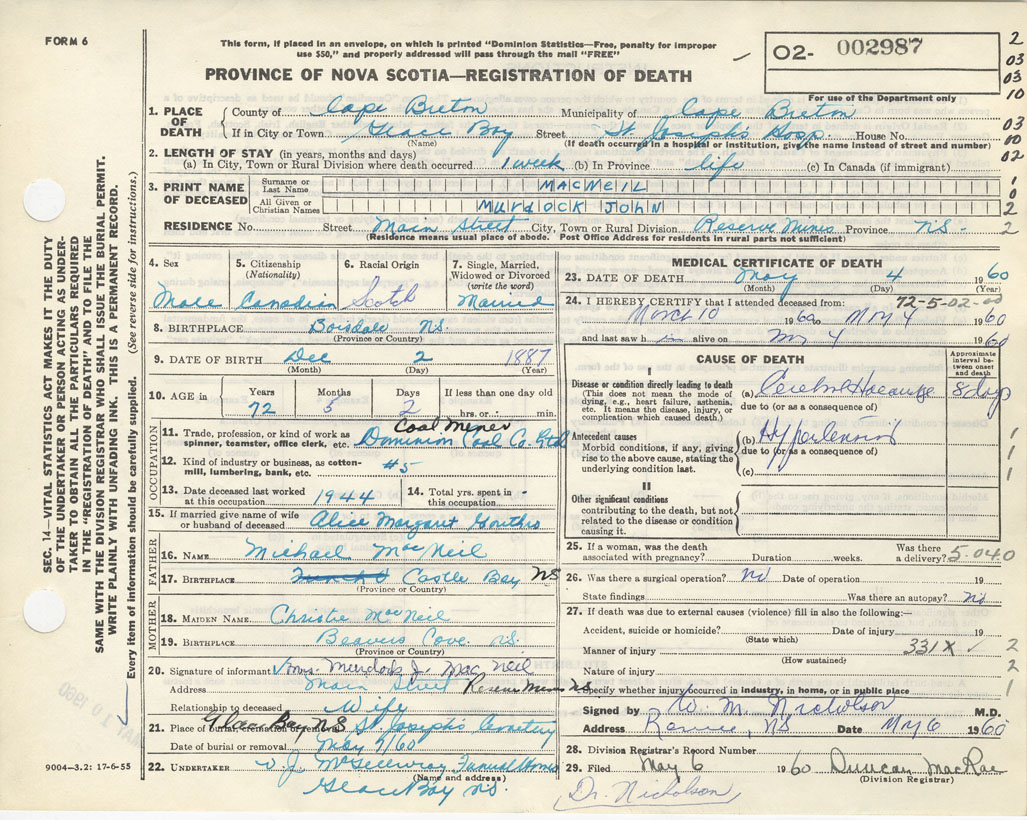 FORM 6
This form, if placed in an envelope, on which is printed "Dominion Statistics—Free, penalty for improper
use $50," and properly addressed will pass through the mail "FREE"
PROVINCE OF NOVA SCOTIA—REGISTRATION OF DEATH
02- 002987
For use of the Department only
2
03
03
10
03
10
02
1
0
2
2
1. PLACE OF DEATH
County of Cape Breton Municipality of Cape Breton
If in City or Town Glace Bay Street St. Joseph's Hosp. House No.
(Name) (If death occurred in a hospital or institution, give the name instead of street and number)
2. LENGTH OF STAY (in years, months and days)
(a) In City, Town or Rural Division where death occurred 1 week (b) In Province life (c) In Canada (if immigrant)
3. PRINT NAME OF DECEASED
Surname or Last Name MACNEIL
All Given or Christian Names MURDOCK JOHN
RESIDENCE No. Street Main Street City, Town or Rural Division Reserve Mines Province NS -
(Residence means usual place of abode. Post Office Address for residents in rural parts not sufficient)
4. Sex 5. Citizenship (Nationality) 6. Racial Origin 7. Single, Married, Widowed or Divorced (write the word)
Male Canadian Scotch Married
8. BIRTHPLACE Boisdale NS.
(Province or Country)
9. DATE OF BIRTH Dec 2 1887
(Month) (Day) (Year)
10. AGE in Years Months Days If less than one day
72 5 2 hrs. or min.
OCCUPATION
11. Trade, profession, or kind of work as spinner, teamster, office clerk, etc. Coal Miner
Dominion Coal Co. Ltd
12. Kind of industry or business, as cotton-mill, lumbering, bank, etc. #5
13. Date deceased last worked at this occupation 1944 14. Total yrs. spent in this occupation -
15. If married give name of wife or husband of deceased Alice Margaret Gouthro
FATHER
16. NAME Michael MacNeil
17. BIRTHPLACE Castle Bay NS
(Province or Country)
MOTHER
18. MAIDEN NAME Christie MacNeil
19. BIRTHPLACE Beavers Cove NS.
(Province or Country)
20. Signature of informant Mrs. Murdock J. MacNeil
Address Main Street Reserve Mines NS
Relationship to deceased Wife
21. Place of burial, cremation or removal Glace Bay NS St Joseph's Cemetery
Date of burial or removal May 7/60
22. UNDERTAKER V J McGillivray Funeral Home
(Name and address)
Glace Bay NS.
MEDICAL CERTIFICATE OF DEATH
23. DATE OF DEATH May 4 1960
(Month) (Day) (Year)
24. I HEREBY CERTIFY that I attended deceased from: 72-5-02-00
March 10 1960 to May 4 1960
and last saw him alive on May 4 1960
CAUSE OF DEATH
Approximate interval between onset and death
I
Disease or condition directly leading to death
(This does not mean the mode of dying, e.g., heart failure, asthenia, etc. It means the disease, injury, or complication which caused death.)
(a) Cerebral 8 days
due to (or as a consequence of)
Antecedent causes
Morbid conditions, if any, giving rise to the above cause, stating the underlying condition last.
(b) Hypertension
due to (or as a consequence of)
(c)
1
1
1
II
Other significant conditions contributing to the death, but not related to the disease or condition causing it.
25. If a woman, was the death associated with pregnancy? Duration weeks. Was there a delivery? 5.040
26. Was there a surgical operation? No Date of operation 19
State findings Was there an autopsy? No
27. If death was due to external causes (violence) fill in also the following:—
Accident, suicide or homicide? Date of injury 19
(State which)
Manner of injury 331X
(How sustained)
Nature of injury
Specify whether injury occurred in industry, in home, or in public place
2
2
1
Signed by W. M. Nicholson M.D.
Address Reserve, NS Date May 6 1960
28. Division Registrar's Record Number
29. Filed May 6 1960 Duncan MacRae
(Division Registrar)
Dr. Nicholson
SEC. 14—VITAL STATISTICS ACT MAKES IT THE DUTY
OF THE UNDERTAKER OR PERSON ACTING AS UNDER-
TAKER TO OBTAIN ALL THE PARTICULARS REQUIRED
IN THE "REGISTRATION OF DEATH" AND TO FILE THE
SAME WITH THE DIVISION REGISTRAR WHO SHALL ISSUE THE BURIAL PERMIT.
WRITE PLAINLY WITH UNFADING INK. THIS IS A PERMANENT RECORD.
Every item of information should be carefully supplied. (See reverse side for instructions.)
9004-3.2: 17-6-55